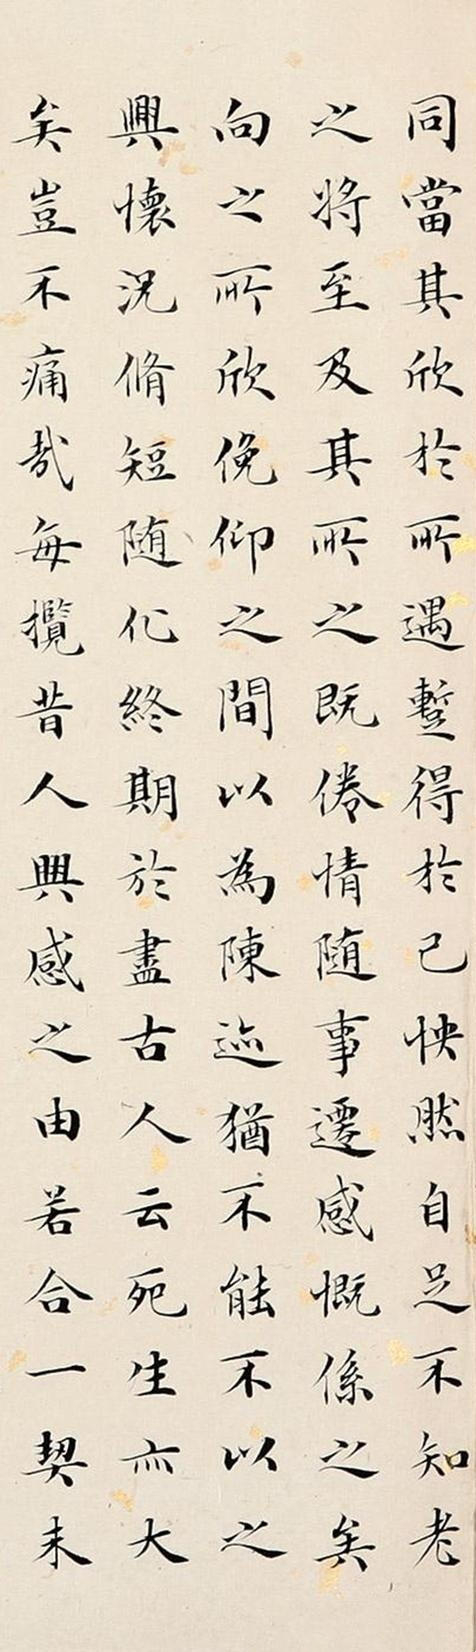 同當其欣於所遇蹔得於己怏然自足不知老
之将至及其所之既倦情随事遷感慨係之矣
向之所欣俛仰之間以為陳迹猶不能不以之
興懷況脩短随化終期於盡古人云死生亦大
矣豈不痛哉每攬昔人興感之由若合一契未